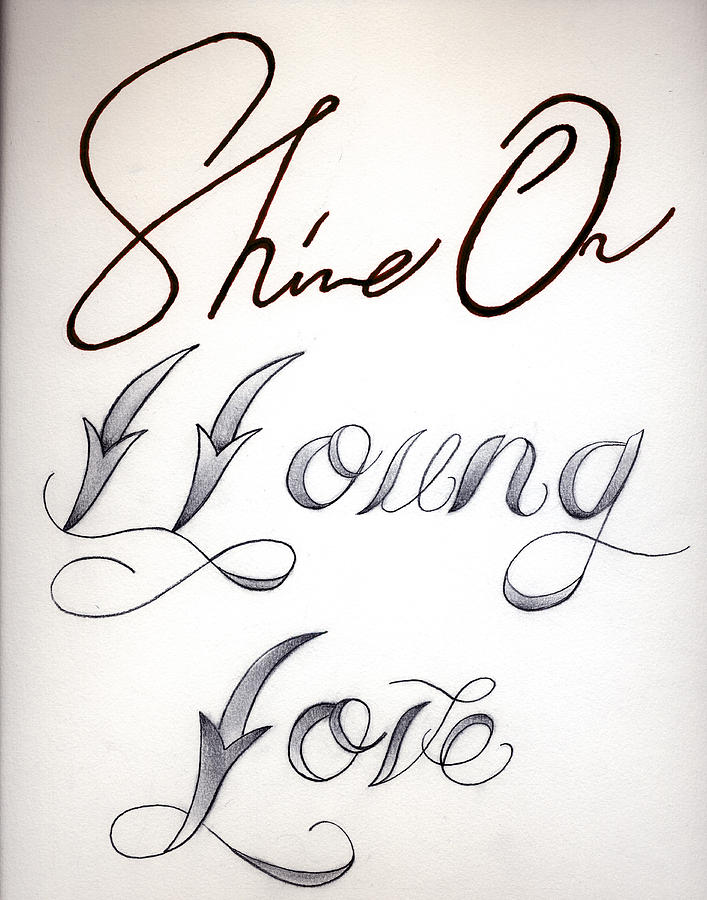 Shine On
Young
Love